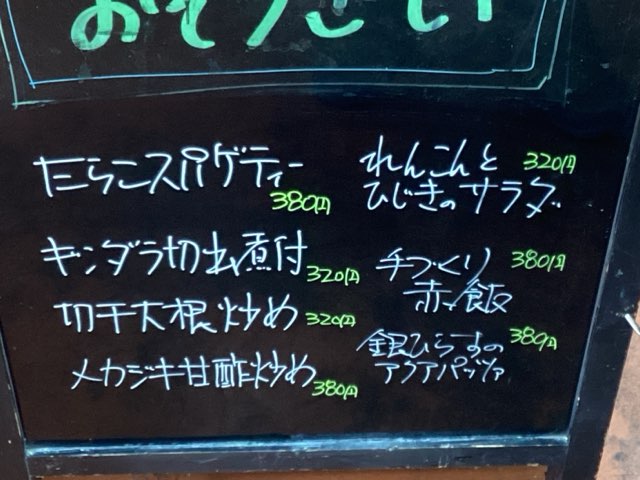 おそうざい
たらこスパゲティー
380円
ギンダラ切出煮付
320円
切干大根炒め
320円
メカジキ甘酢炒め
380円
れんこんと
320円
ひじきのサラダ
手づくり
380円
赤飯
銀ひらすの
380円
アクアパッツァ